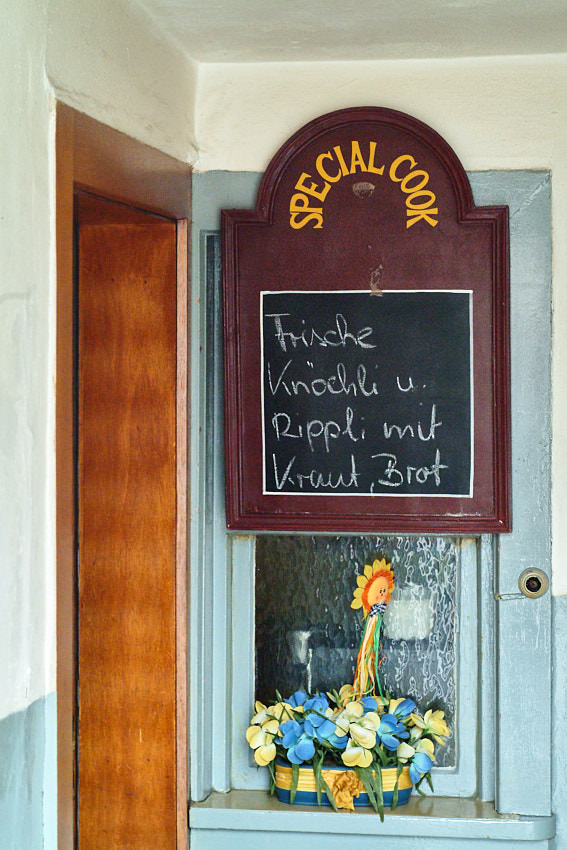 SPECIAL COOK
Frische
Knöchli u.
Rippli mit
Kraut, Brot